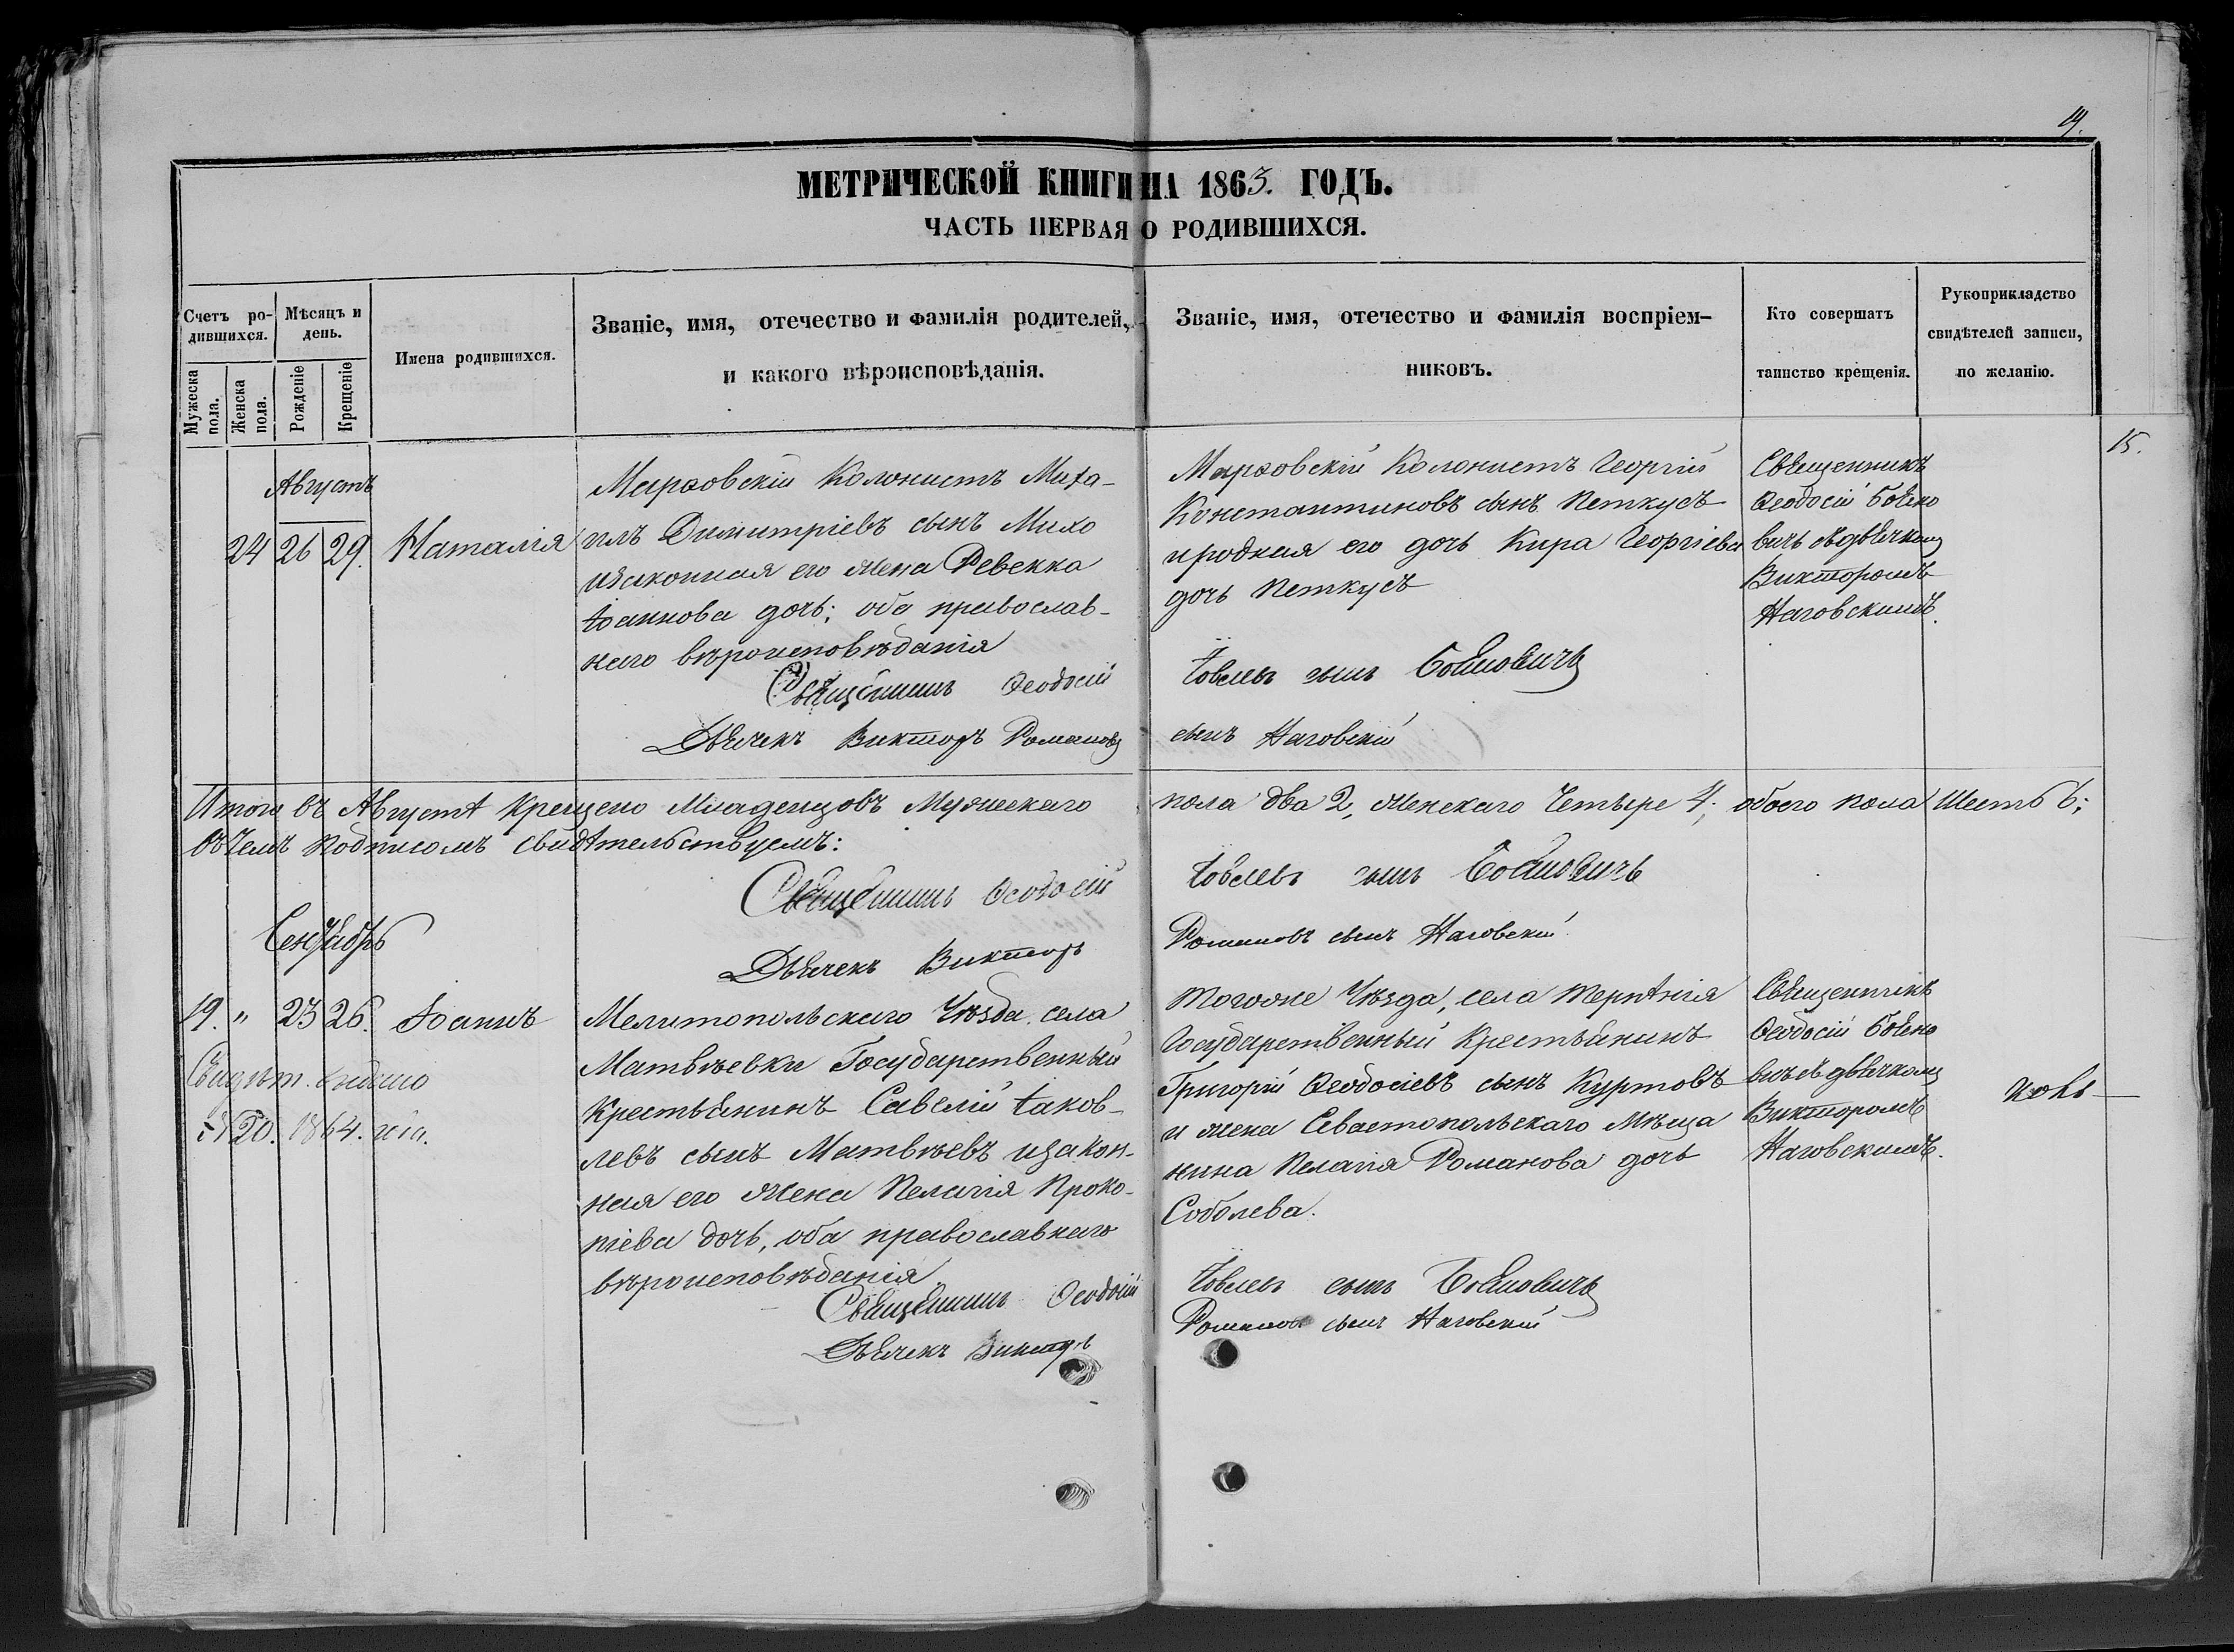 19.
МЕТРИЧЕСКОЙ КНИГИ НА 1863. ГОДЪ.
ЧАСТЬ ПЕРВАЯ О РОДИВШИХСЯ.
Счетъ ро-
дившихся.
Мужеска пола.
Женска пола.
Мѣсяцъ и
день.
Рожденіе
Крещеніе
Имена родившихся.
Званіе, имя, отечество и фамилія родителей,
и какого вѣроисповѣданія.
Званіе, имя, отечество и фамилія воспріем-
никовъ.
Кто совершатъ
таинство крещенія.
Рукоприкладство
свидѣтелей записи,
по желанію.
15.
Августъ
24 26 29. Наталія
Колонистъ Миха-
илъ Димитріевъ сынъ Михо
изаконная его жена Ревекка
Іоаннова дочь; оба православ-
наго вѣроисповѣданія
Священникъ Ѳеодосій
Дьячекъ Викторъ Романовъ
Колонистъ Георгій
Константиновъ сынъ Петкусъ
иродная его дочь Кира Георгіева
дочь Петкусъ
Іовлевъ сынъ
сынъ Наговскій
Священникъ
Ѳеодосій
вичь съдьячкомъ
Викторомъ
Наговскимъ.
Итого въ Августѣ крещено Младенцовъ Мужескаго пола два 2, женскаго Четыре 4; обоего пола Шесть 6;
въчемъ подписомъ свидѣтельствуемъ:
Священникъ Ѳеодосій Іовлевъ сынъ
Дьячекъ Викторъ Романовъ сынъ Наговскій
Сентябрь
19. " 23 26. Іоаннъ
Свидѣт. выдано
№ 20. 1864. года.
Мелитопольскаго Уѣзда села
Матвѣевки Государственный
Крестьянинъ Савелій Іаков-
левъ сынъ Матвѣевъ изакон-
ная его жена Пелагія Проко-
піева дочь, оба православнаго
вѣроисповѣданія
Священникъ Ѳеодосій
Дьячекъ Викторъ
Тогоже Уѣзда, села Терпѣнія
Государственный Крестьянинъ
Григорій Ѳеодосіевъ сынъ Куртовъ
и жена Севастопольскаго Мѣща
нина Пелагія Романова дочь
Соболева.
Іовлевъ сынъ
Романовъ сынъ Наговскій
Священникъ
Ѳеодосій
вичь съ дьячкомъ
Викторомъ
Наговскимъ.